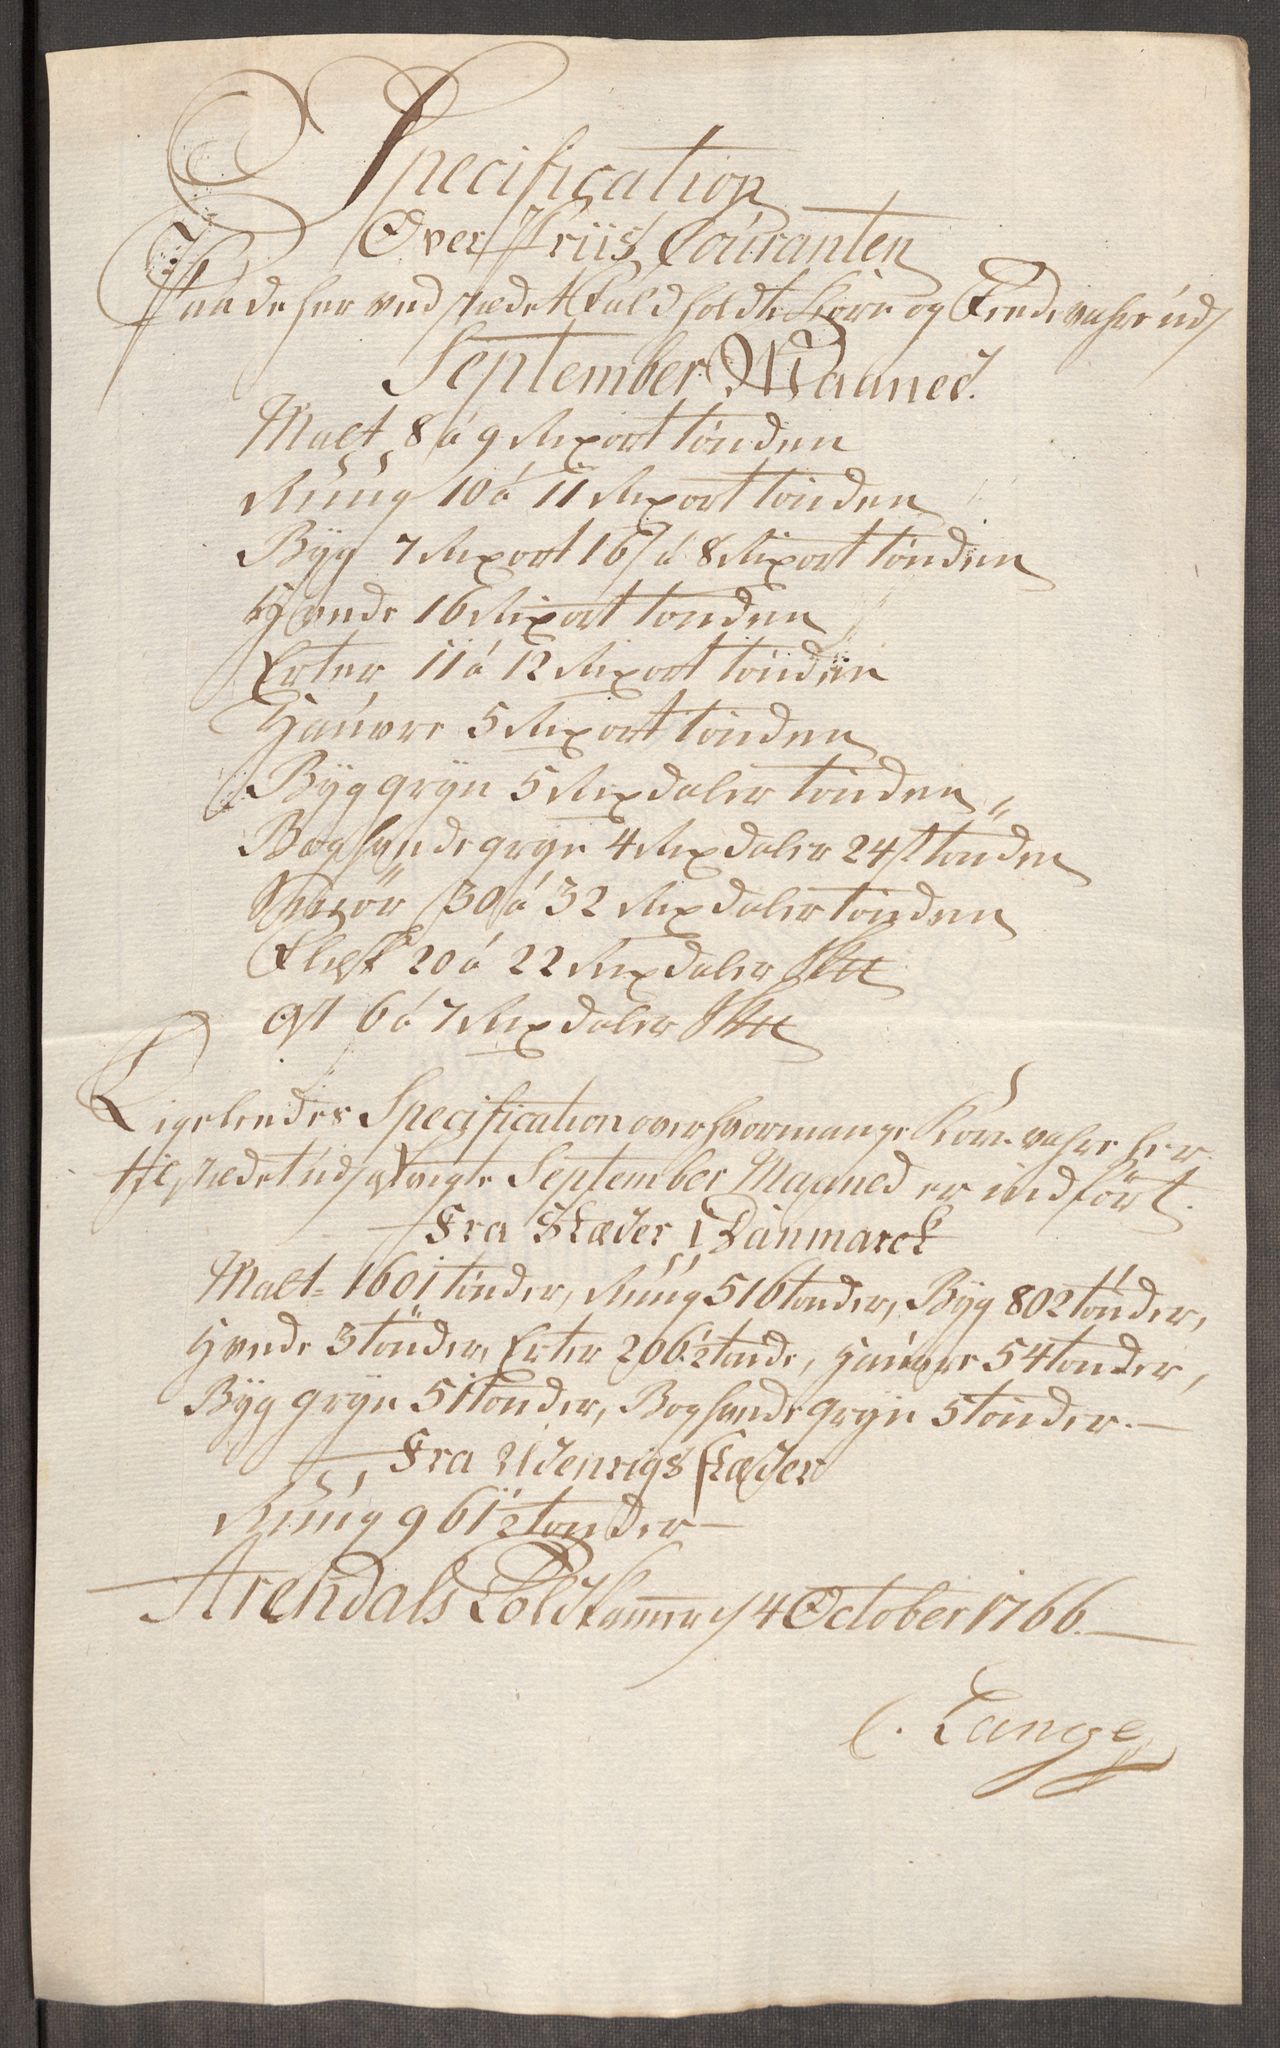 Specification
Over Priis Couranten
Paa de her ved stædet fald holdte Korn og Fede vahre udj
September Maaned.
Malt 8 á 9 Rixort tönden
Rúúg 10 á 11 Rixort tönden
Byg 7 Rixort 16 s á 8 Rixort tönden
Hvede 16 Rixort tönden
Erter 11 á 12 Rixort tönden
Haúvre 5 Rixort tönden
Byggryn 5 Rixdaler tönden
Boghvedegryn 4 Rixdaler 24 s tönden
Smör 30 á 32 Rixdaler tönden
Flesk 20 á 22 Rixdaler
Ost 6 á 7 Rixdaler
Ligeledes Specification over hvormange Korn vahre her
til stædet udj September Maaned er indfört.
Fra Stæder i Danmarck
Malt 1601 tönder, Rúúg 516 tönder, Byg 802 tönder,
Hvede 3 tönder, Erter 206 1/2 tönde, Haúvre 54 tönder,
Byggryn 51 tönder, Boghvedegryn 5 tönder.
Fra Udenrigs stæder
Rúúg 961 1/2 tönder
Arendals Told Kammer d 4 October 1766.
C. Lange